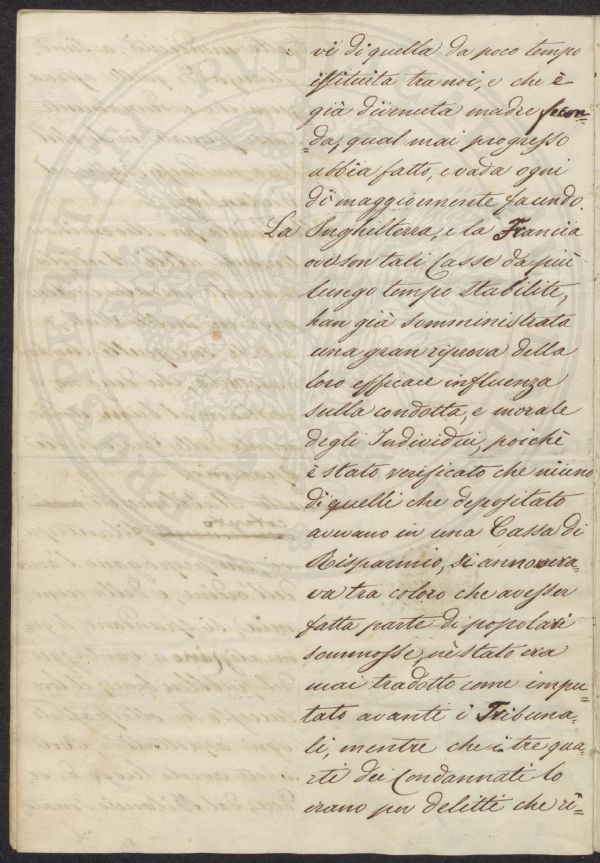 vi di quella da poco tempo
istituita tra noi, e che è
già divenuta madre fecon=
=da, qual mai progresso
abbia fatto, e vada ogni
dì maggiormente facendo.
La Inghilterra, e la Francia
ove son tali Casse da più
lungo tempo stabilite,
han già somministrata
una gran riprova della
loro efficace influenza
sulla condotta, e morale
degli Individui, poichè
è stato verificato che niuno
di quelli che depositato
avevano in una Cassa di
Risparmio, si annovera=
va tra coloro che avesser
fatta parte di popolari
sommosse, nè stato era
mai tradotto come impu=
tato avanti i Tribuna=
li, mentre che i tre qua=
rti dei Condannati lo
erano per delitti che ri=